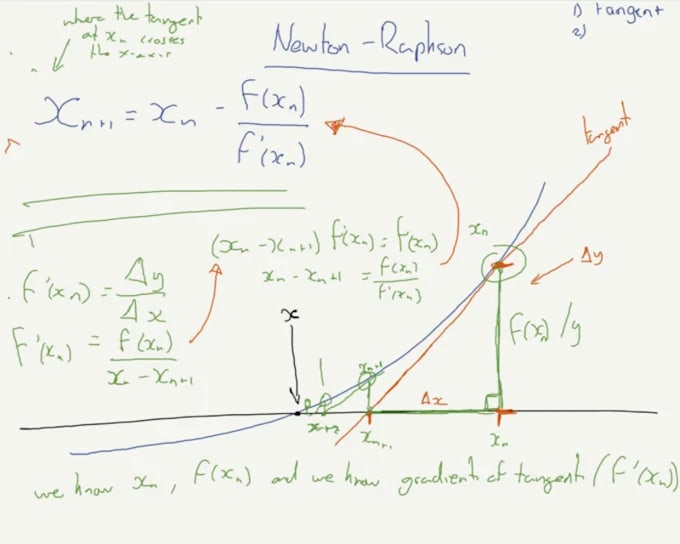 where the tangent
at xₙ crosses
the x-axis
Newton-Raphson
1) tangent
2)
xₙ₊₁ = xₙ - f(xₙ)/f'(xₙ)
tangent
(xₙ - xₙ₊₁) f'(xₙ) = f(xₙ)
xₙ - xₙ₊₁ = f(xₙ)/f'(xₙ)
f'(xₙ) = Δy/Δx
f'(xₙ) = f(xₙ)/xₙ - xₙ₊₁
xₙ
Δy
f(xₙ)/y
x
xₙ₊₁
Δx
xₙ₊₂
xₙ₊₁
xₙ
we know xₙ, f(xₙ) and we know gradient of tangent (f'(xₙ)